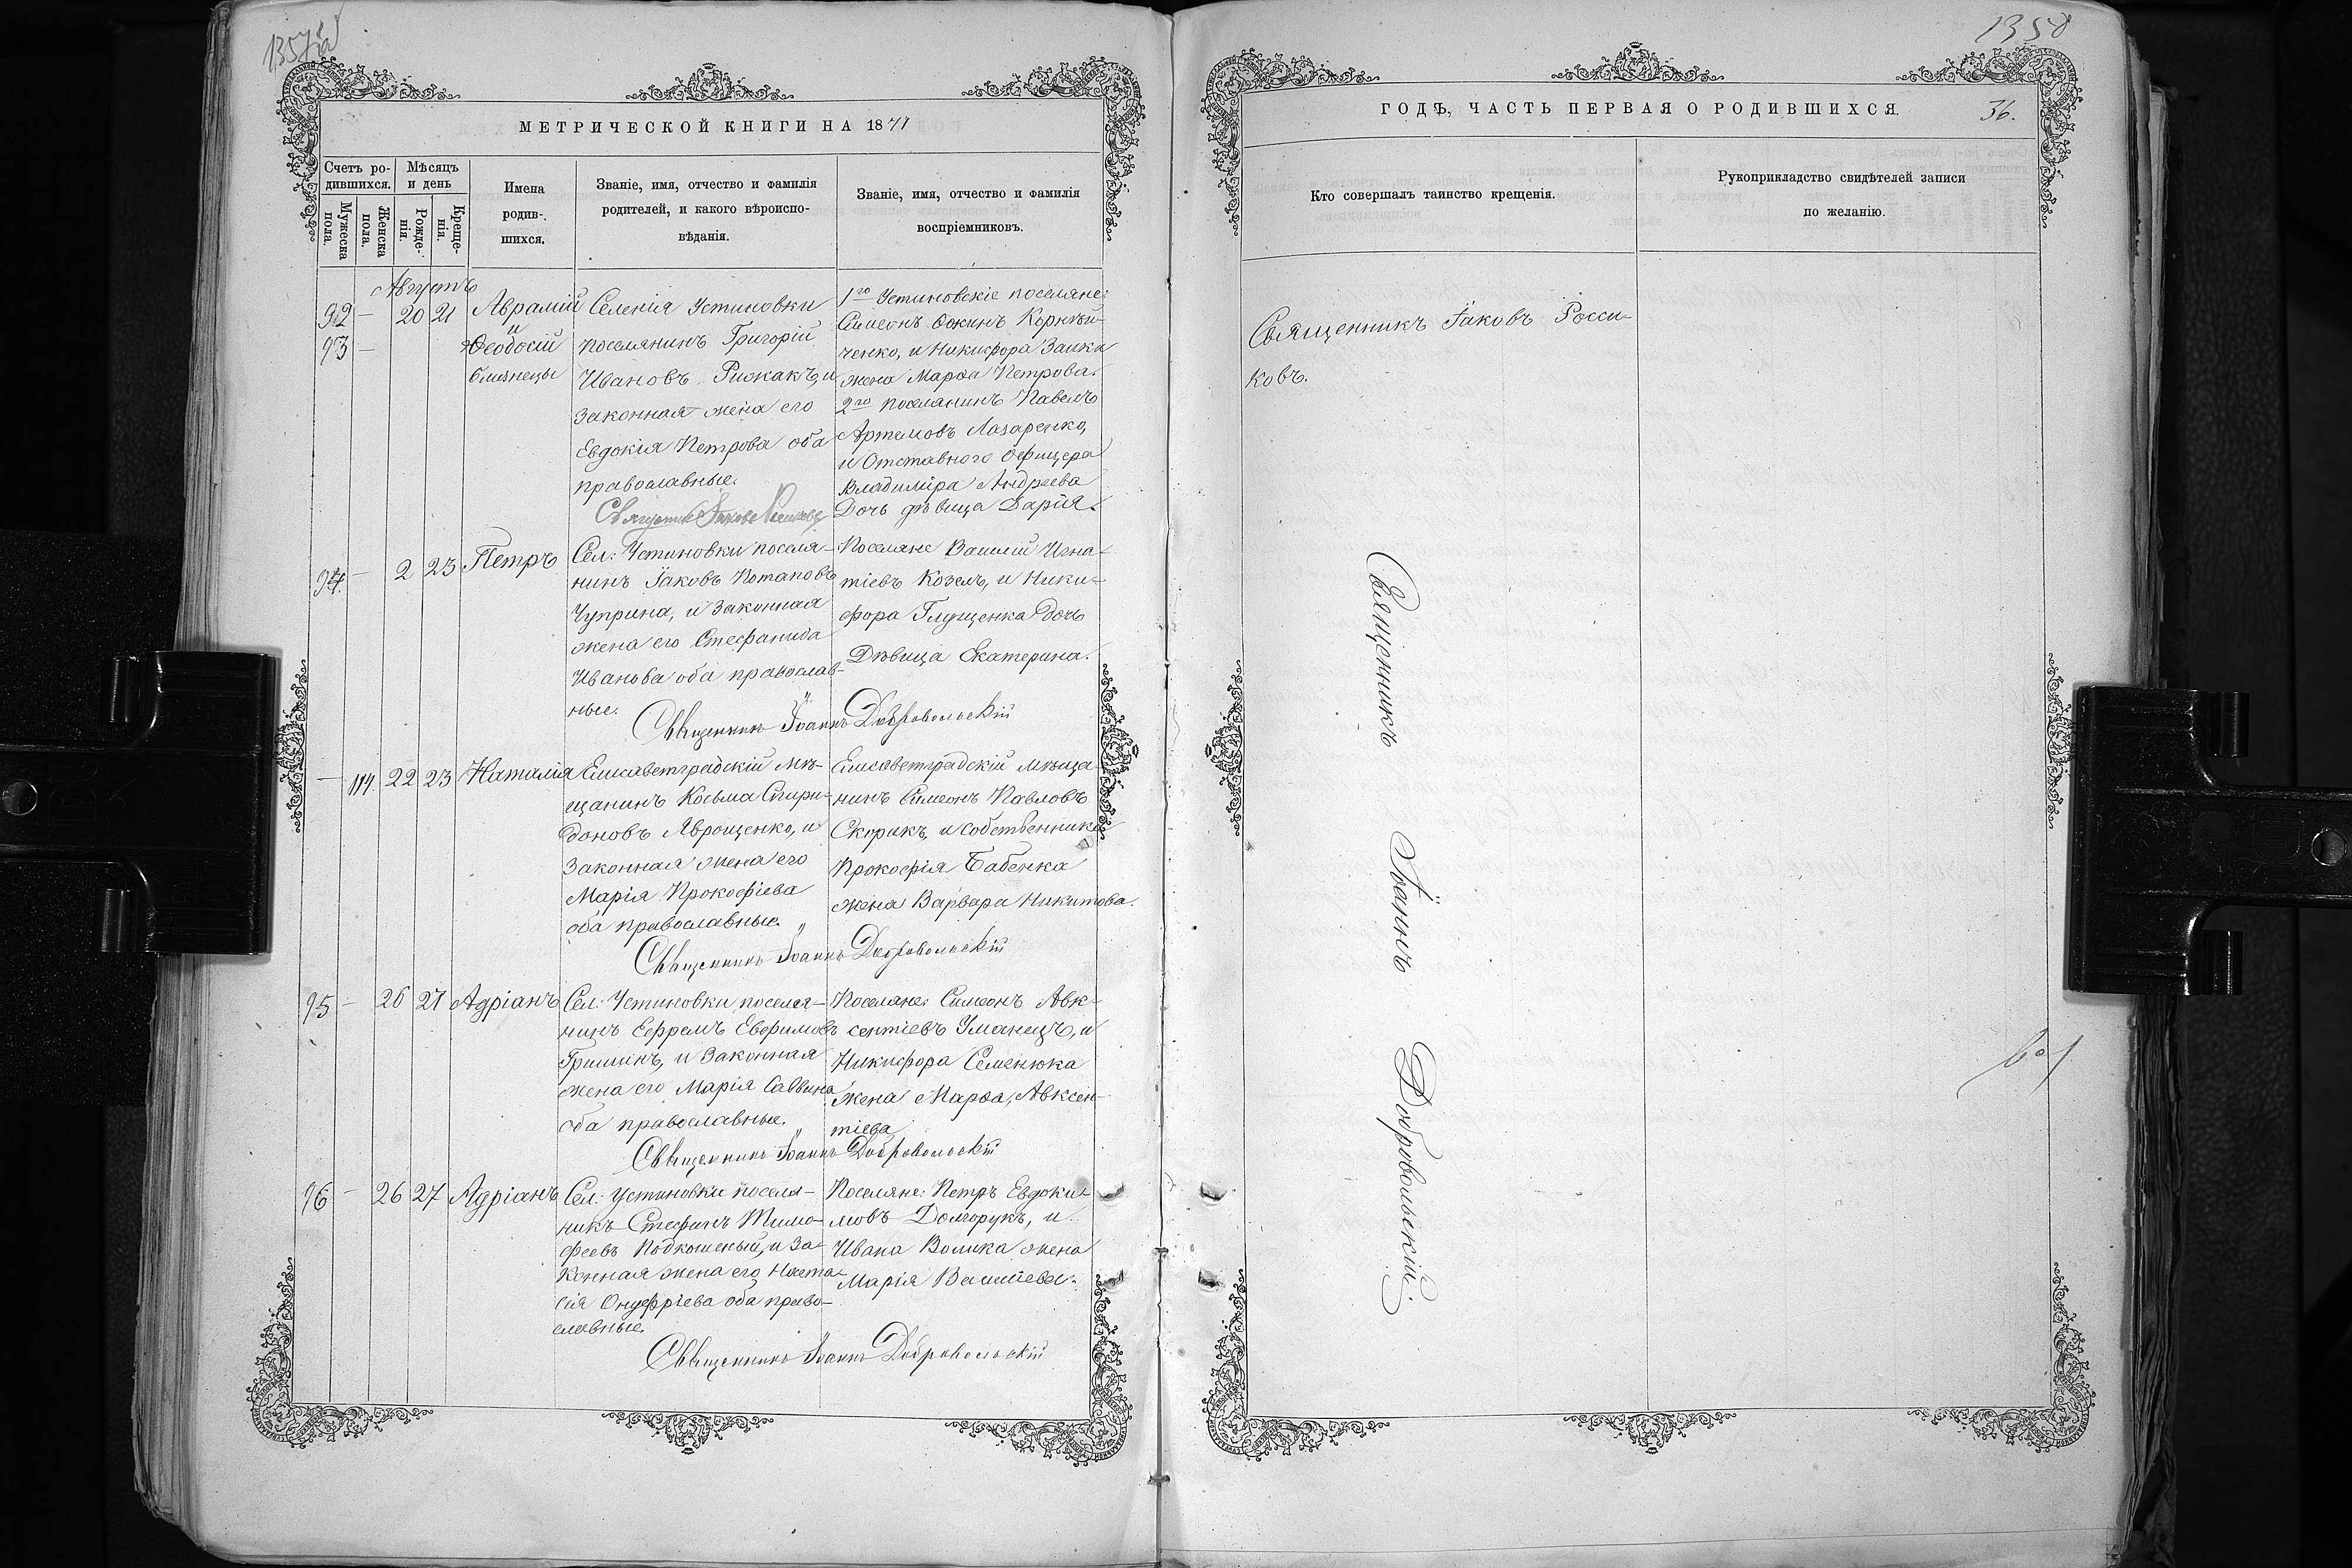 1357
МЕТРИЧЕСКОЙ КНИГИ НА 1871
Счетъ ро-
дившихся.
Мѣсяцъ
и день
Мужеска
пола.
Женска
пола.
Рожде-
нія.
Креще-
нія.
Имена
родив-
шихся.
Званіе, имя, отчество и фамилія
родителей, и какого вѣроиспо-
вѣданія.
Званіе, имя, отчество и фамилія
воспріемниковъ.
Августъ
92 - 20 21 Аврамій
и
93 - Ѳеодосій
близнецы
Селенія Устиновки
поселянинъ Григорій
Ивановъ Рижакъ, и
законная жена его
Евдокія Петрова оба
православные.
Священникъ Іаковъ Россиковъ
1го Устиновскіе поселяне:
Симеонъ Ѳокинъ Корнѣй-
ченко, и Никифора Заики
жена Марѳа Петрова.
2го поселянинъ Павелъ
Артемовъ Лазаренко,
и Отставнаго Офицера
Владиміра Андреева
Дочь дѣвица Дарія.
94. - 2 23 Петръ
Сел: Устиновки поселя-
нинъ Іаковъ Потаповъ
Чуприна, и законная
жена его Стефанида
Иванова оба православ-
ные.
Поселяне Василій Игна-
тіевъ Козелъ, и Ники-
фора Глущенка дочь
Дѣвица Екатерина.
Священникъ Іоаннъ Добровольскій
- 114. 22 23 Наталія
Елисаветградскій мѣ-
щанинъ Косьма Спири-
доновъ Яврощенко, и
законная жена его
Марія Прокофіева
оба православные.
Елисаветградскій мѣща-
нинъ Симеонъ Павловъ
Скорикъ, и собственника
Прокофія Бабенка
жена Варвара Никитова.
Священникъ Іоаннъ Добровольскій
95 - 26 27 Адріанъ
Сел: Устиновки поселя-
нинъ Ефремъ Евфимовъ
Гришинъ, и законная
жена его Марія Саввина
оба православные.
Поселяне: Симеонъ Авк-
сентіевъ Уманецъ, и
Никифора Семенюка
жена Марѳа, Авксен-
тіева
Священникъ Іоаннъ Добровольскій
96 - 26 27 Адріанъ
Сел: Устиновки поселя-
никъ Стефанъ Тимо-
феевъ Подкошеный, и за-
конная жена его Наста-
сія Онуфріева оба право-
славные.
Поселяне: Петръ Евдоки-
мовъ Долгорукъ, и
Ивана Волика жена
Марія Василіева.
Священникъ Іоаннъ Добровольскій
1358
ГОДѢ, ЧАСТЬ ПЕРВАЯ О РОДИВШИХСЯ.
36.
Кто совершалъ таинство крещенія.
Рукоприкладство свидѣтелей записи
по желанію.
Священникъ Іаковъ Росси-
ковъ.
Священникъ Іоаннъ Добровольскій